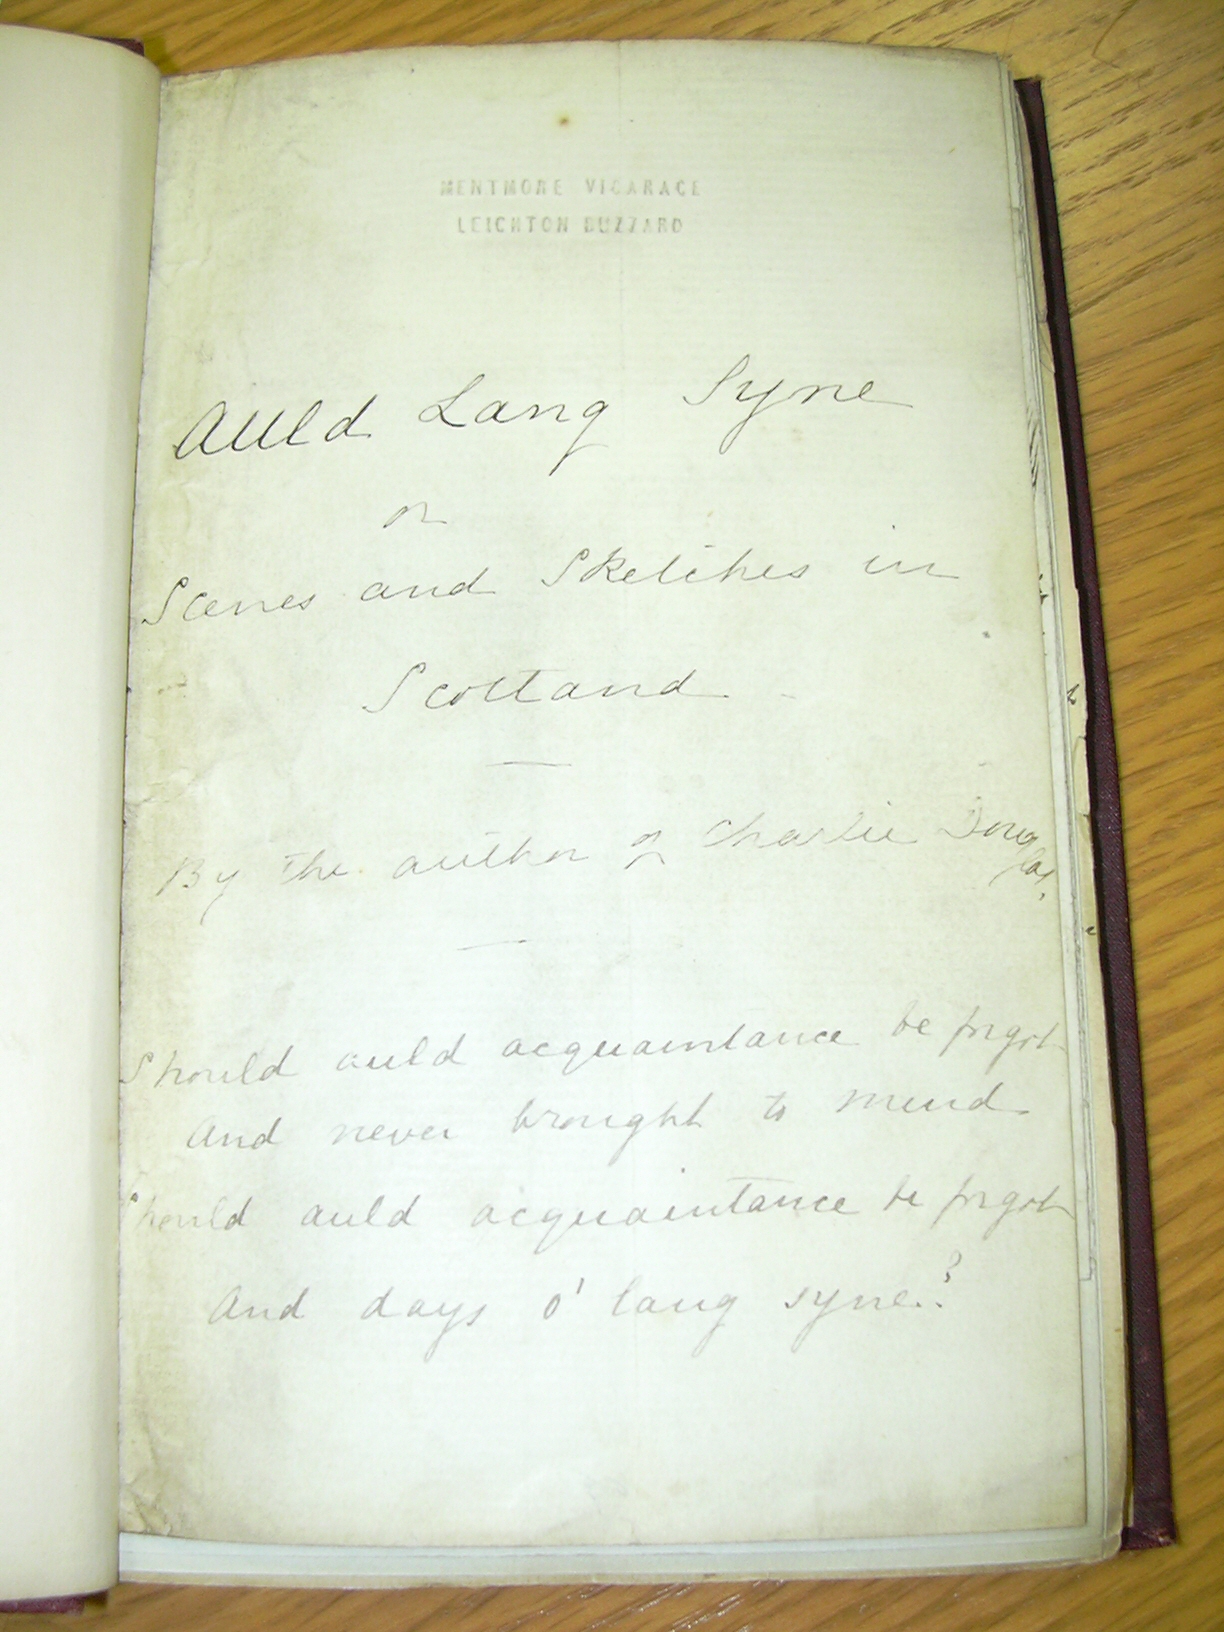 MENTMORE VICARAGE
LEIGHTON BUZZARD
Auld Lang Syne
or
Scenes and Sketches in
Scotland
By the author of Charlie Douglas.
Should auld acquaintance be forgot
And never brought to mind
Should auld acquaintance be forgot
And days o' lang syne.?